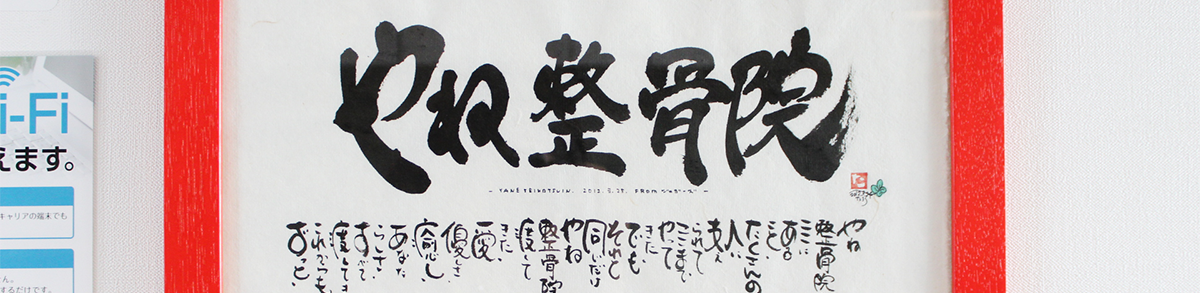 i-Fi
えます。
キャリアの端末でも
ん。
するだけです。
やね整骨院
やね
整骨院
ここに
ある
たくさんの
人に
支え
られて
ここまで
やって
きた
でも
それと
同いだけ
やね
整骨院
渡して
きた
愛
優しさ
癒し
あなた
らしさ
すべて
渡してき
これからも
ずっと